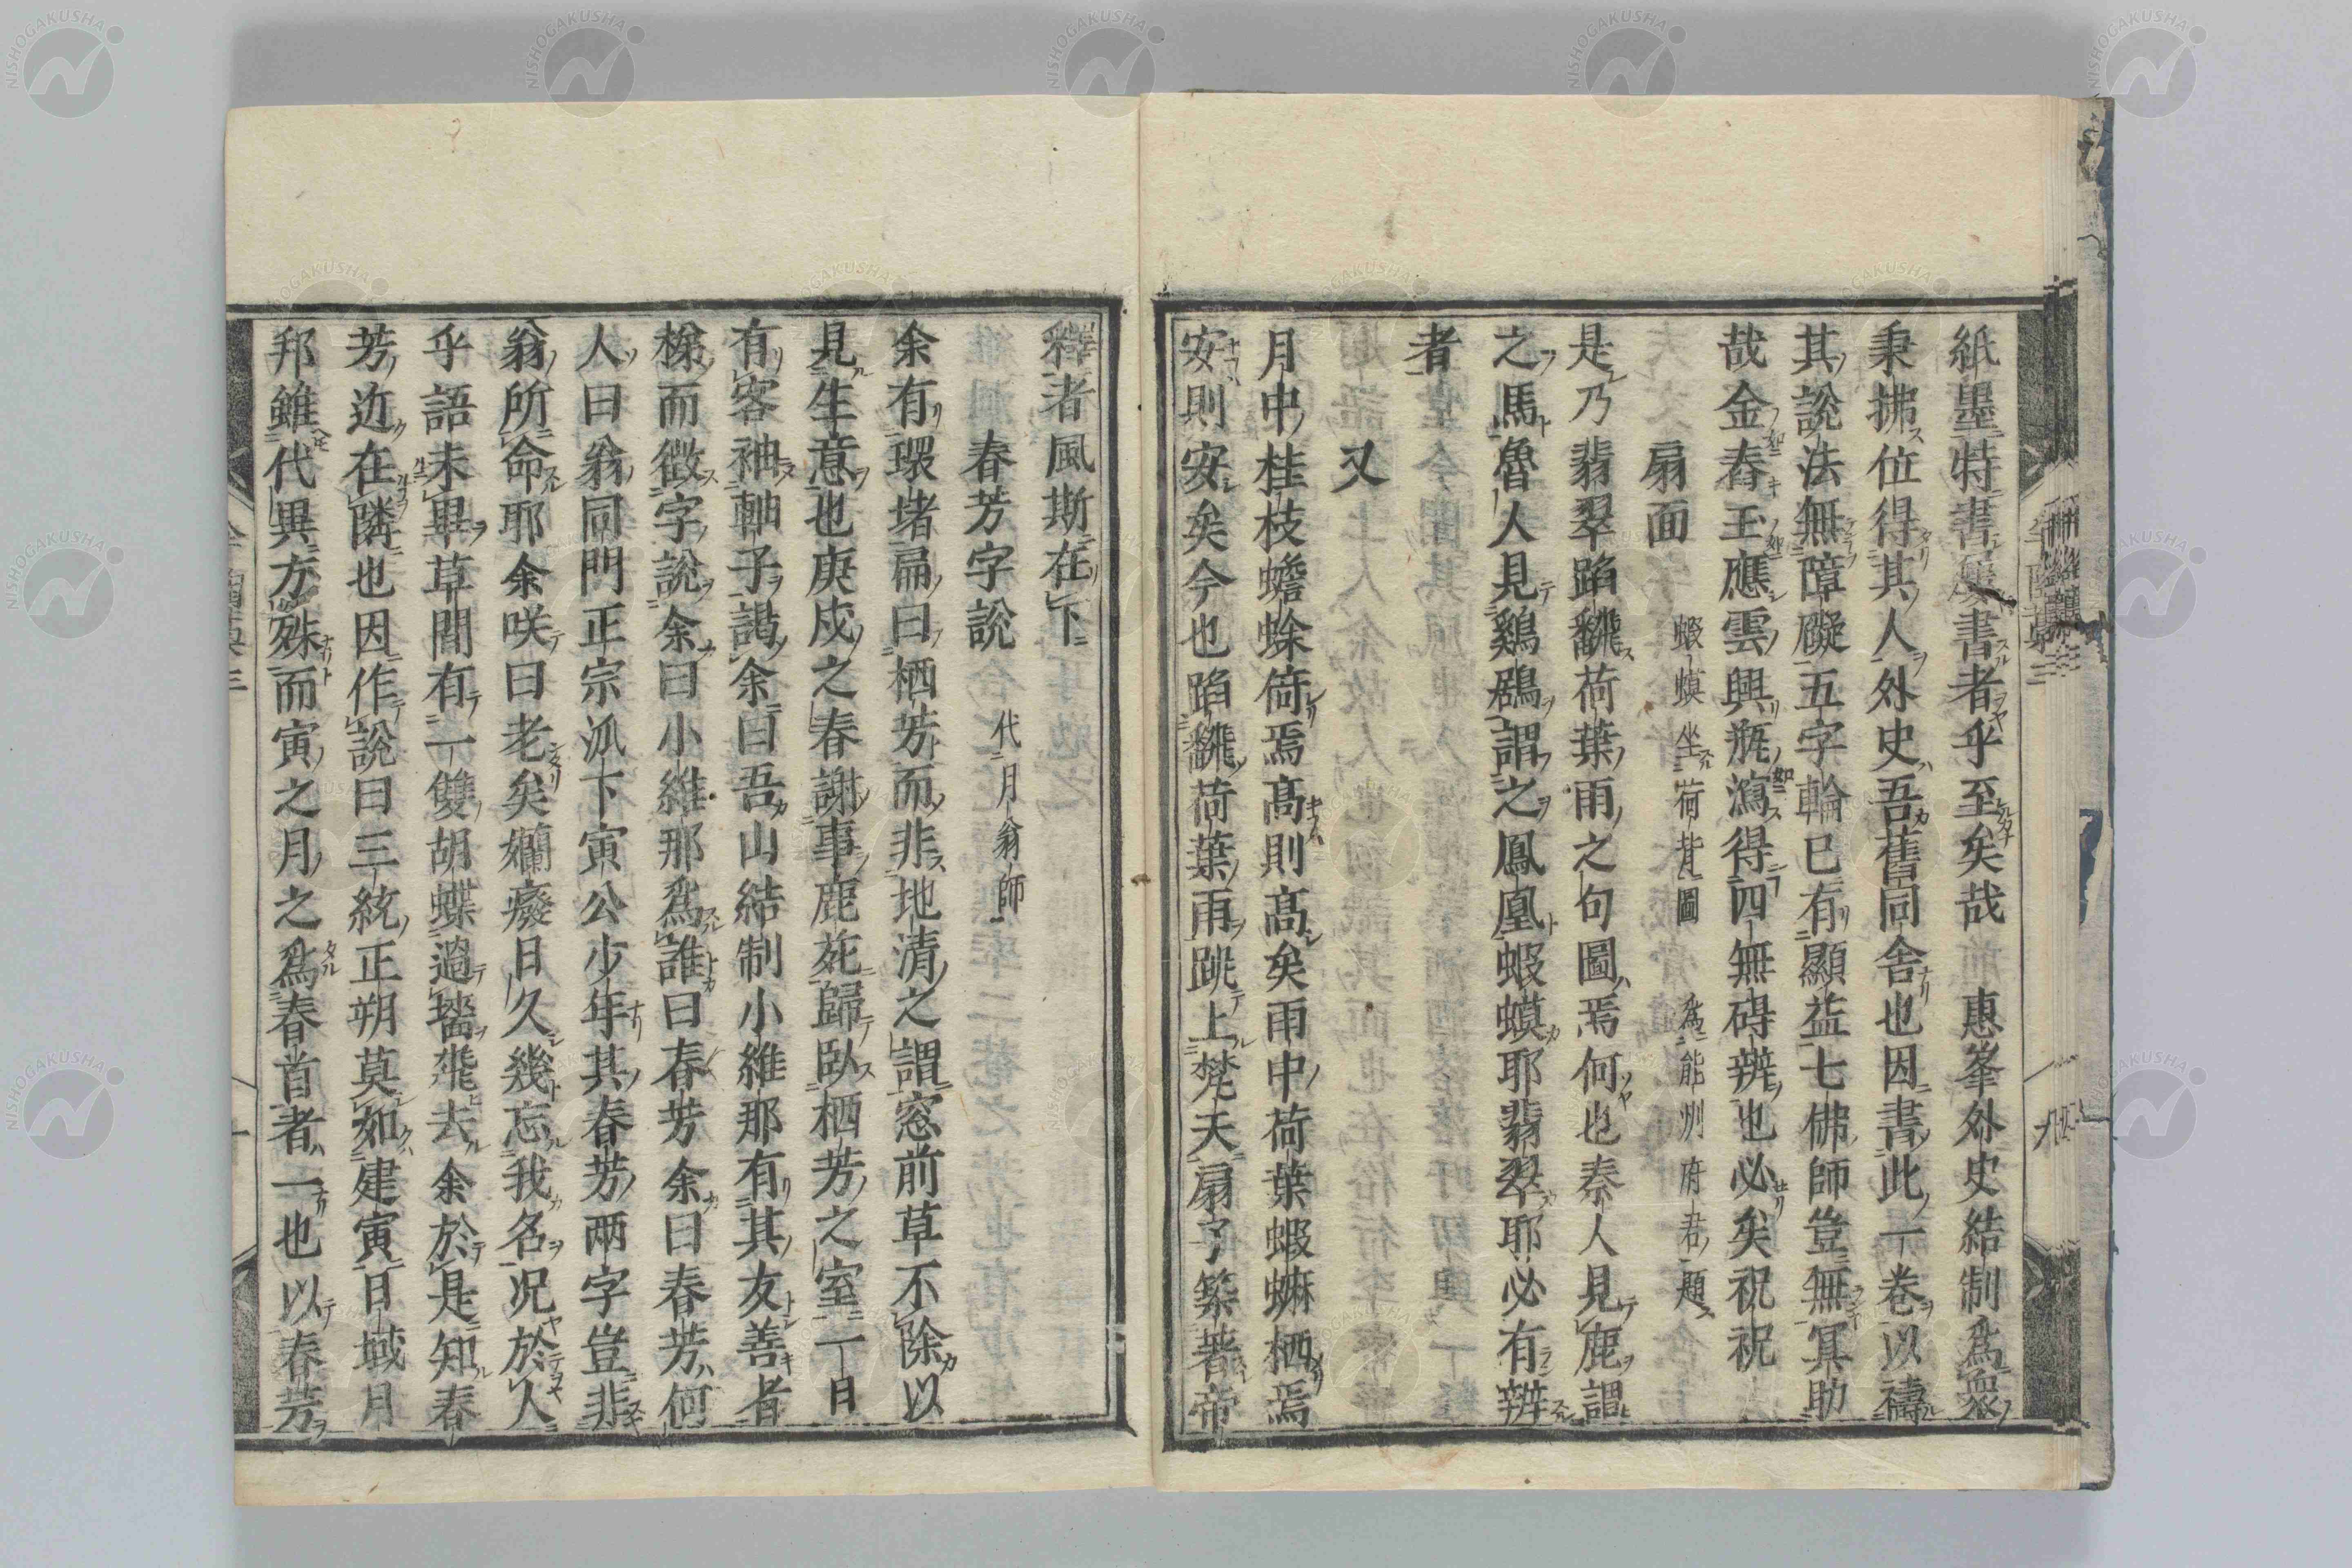 紙墨特書屢書者乎至矣哉 惠峯外史結制爲衆
秉拂位得其人外史吾舊同舍也因書此一卷以禱
其說法無障礙五字輪已有顯益七佛師豈無冥助
哉金春玉應雲興瓶瀉得四無碍辨也必矣祝祝
扇面 蝦蟆坐荷背圖 爲能州府君題
是乃翡翠蹈翻荷葉雨之句圖焉何也秦人見鹿謂
之馬魯人見鷄鶋謂之鳳凰蝦蟆耶翡翠耶必有辨
者
又
月中桂枝蟾蜍倚焉高則高矣雨中荷葉蝦蟆栖焉
安則安矣今也蹈翻荷葉雨跳上梵天扇子築著帝
釋者風斯在下
春芳字說 代月翁師
余有環堵扁曰栖芳而非地清之謂窓前草不除以
見生意也庚戌之春謝事鹿苑歸臥栖芳之室一日
有客袖軸子謁余曰吾山結制小維那有其友善者
梯而徵字說余曰小維那爲誰曰春芳余曰春芳何
人曰翁同門正宗派下寅公少年其春芳兩字豈非
翁所命耶余咲曰老矣嬾癈日久幾忘我名况於人
乎語未畢草間有一雙胡蝶過墻飛去余於是知春
芳近在隣也因作說曰三統正朔莫如建寅日域月
邦雖代異方殊而寅之月之爲春首者一也以春芳